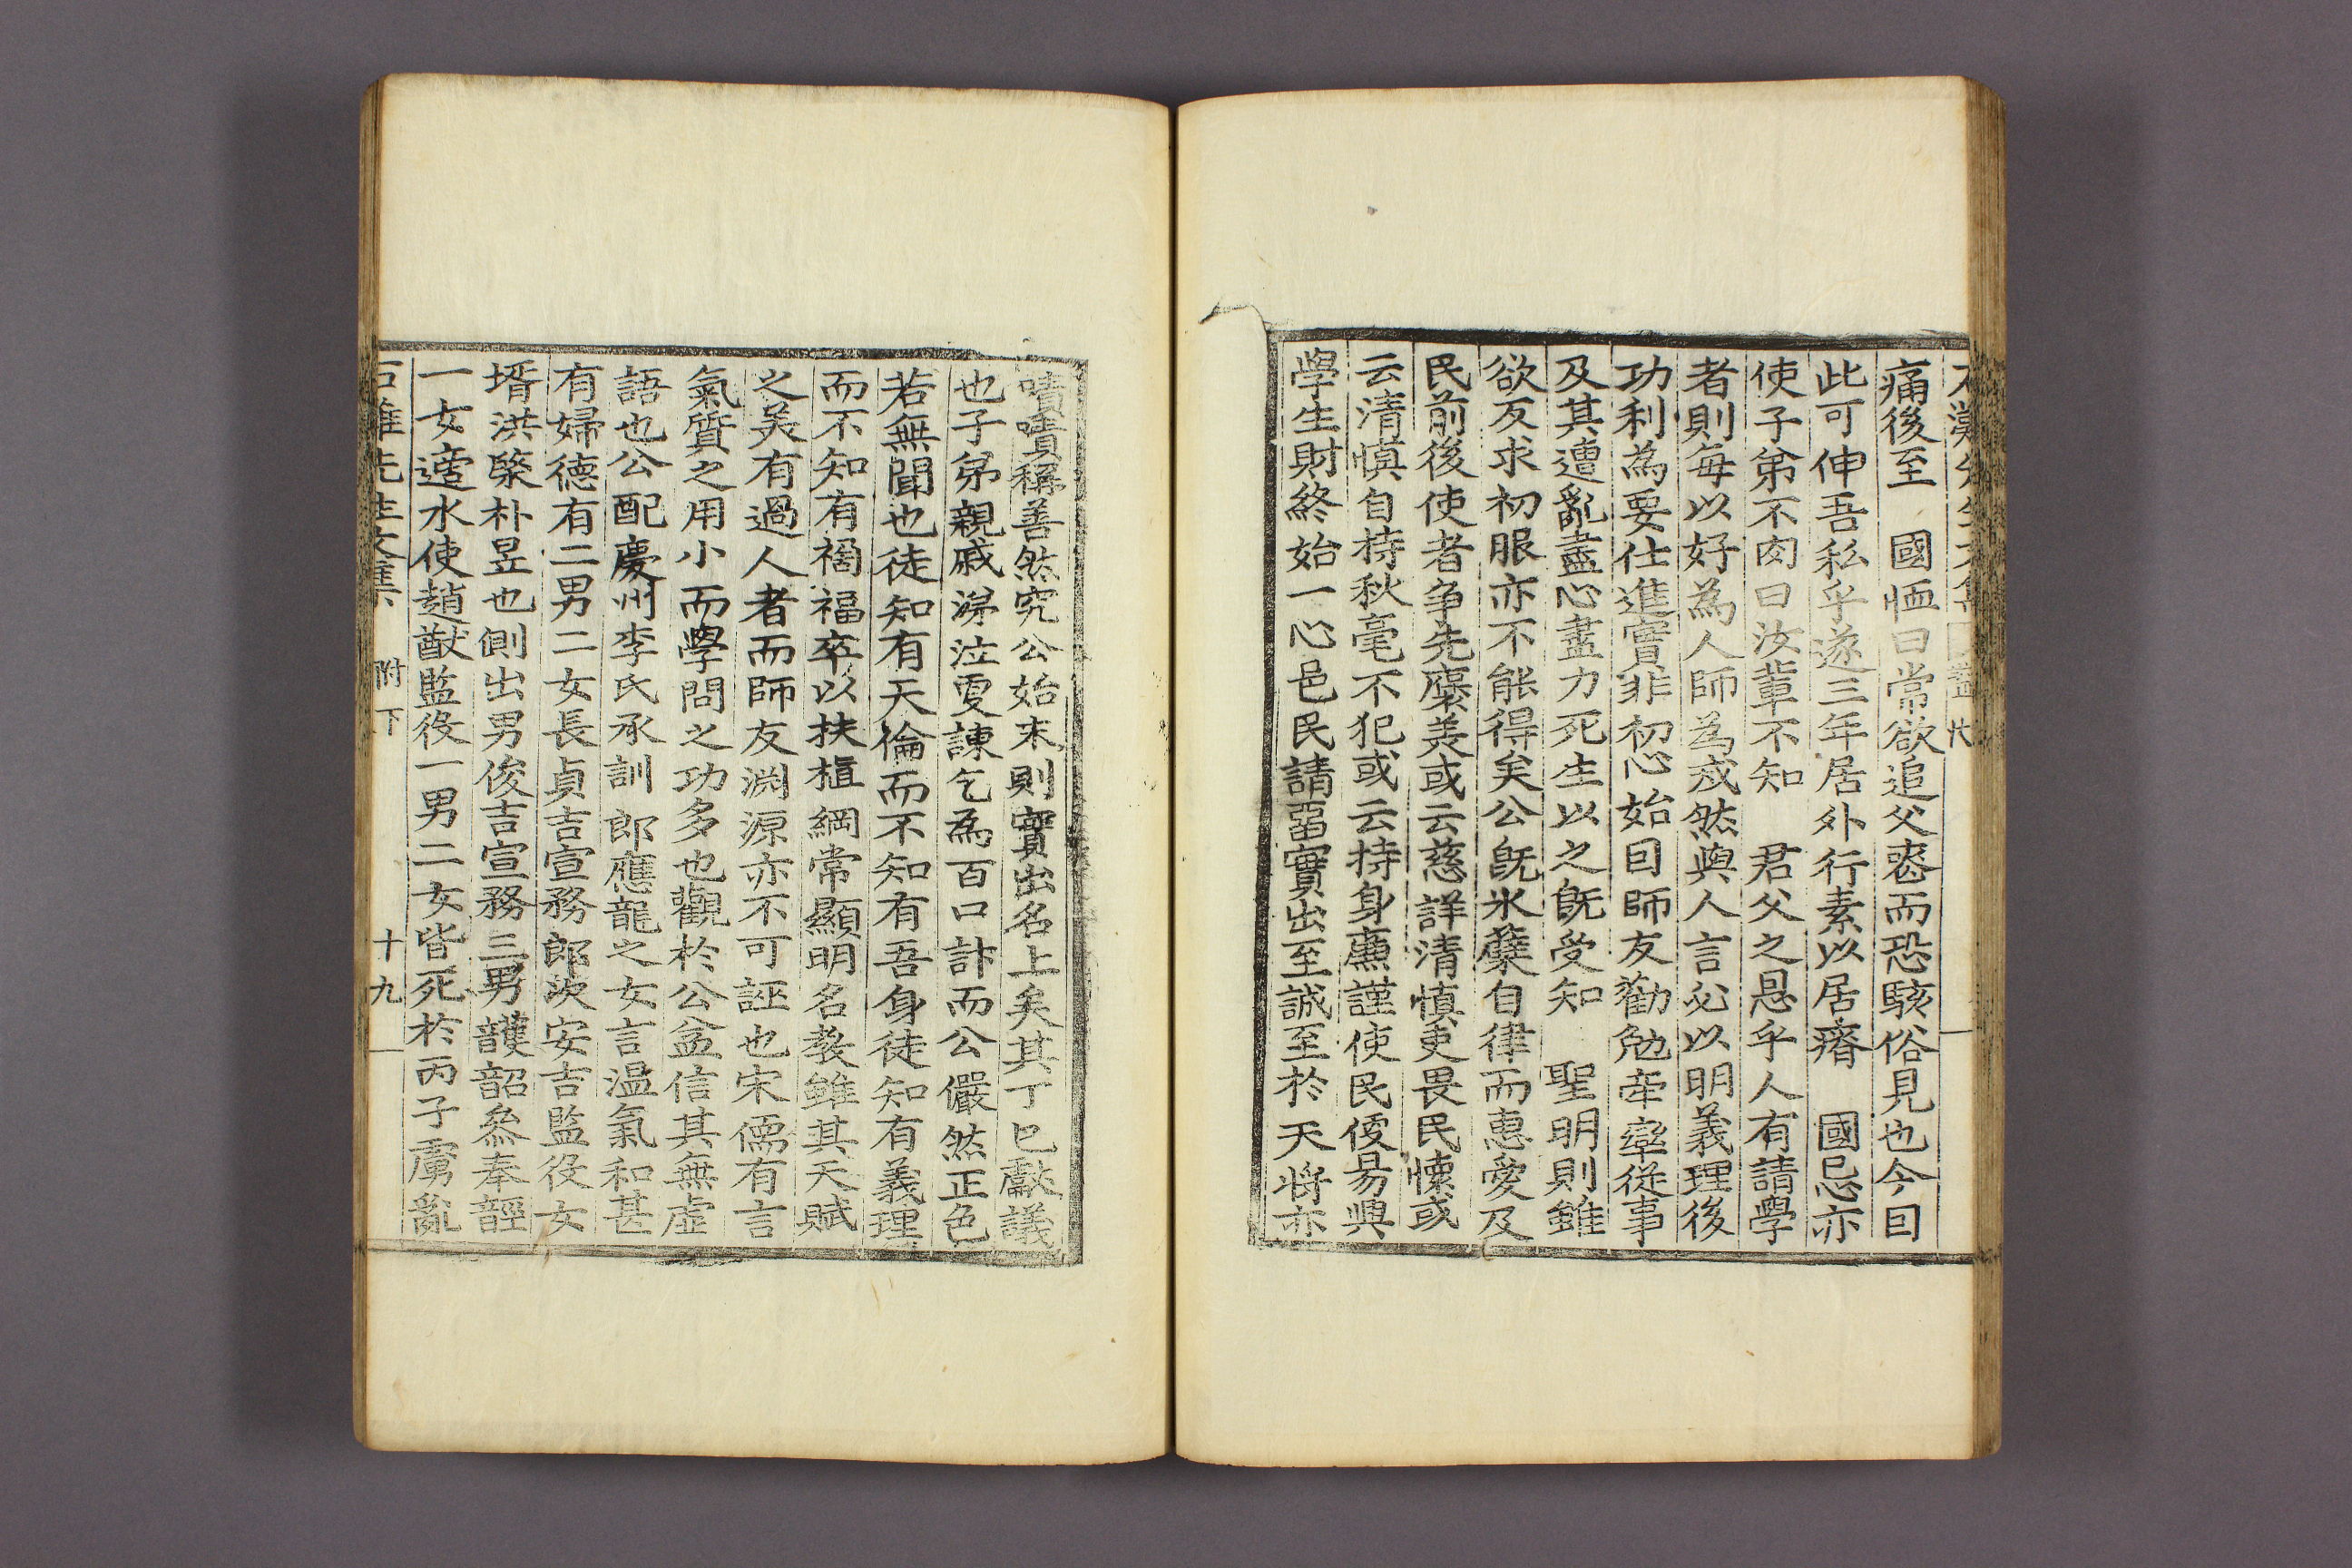 痛後至 國恤曰常欲追父喪而恐駭俗見也今因
此可伸吾私乎遂三年居外行素以居瘠 國忌亦
使子弟不肉曰汝輩不知 君父之恩乎人有請學
者則每以好為人師為戒然與人言必以明義理後
功利為要仕進實非初心始因師友勸勉牽率從事
及其遭亂盡心盡力死生以之旣受知 聖明則雖
欲反求初服亦不能得矣公旣氷蘗自律而惠愛及
民前後使者爭先褒美或云慈詳清慎吏畏民懷或
云清慎自持秋毫不犯或云持身廉謹使民便易興
學生財終始一心邑民請留實出至誠至於天將亦
嘖嘖稱善然究公始末則實出名上矣其丁巳獻議
也子弟親戚涕泣更諫乞為百口計而公儼然正色
若無聞也徒知有天倫而不知有吾身徒知有義理
而不知有禍福卒以扶植綱常顯明名教雖其天賦
之美有過人者而師友淵源亦不可誣也宋儒有言
氣質之用小而學問之功多也觀於公益信其無虛
語也公配慶州李氏承訓郎應龍之女言溫氣和甚
有婦德有二男二女長貞吉宣務郎次安吉監役女
壻洪棨朴昱也側出男俊吉宣務三男頀韶叅奉䪫
一女適水使趙猷監役一男二女皆死於丙子虜亂
先生文集 附下 十九